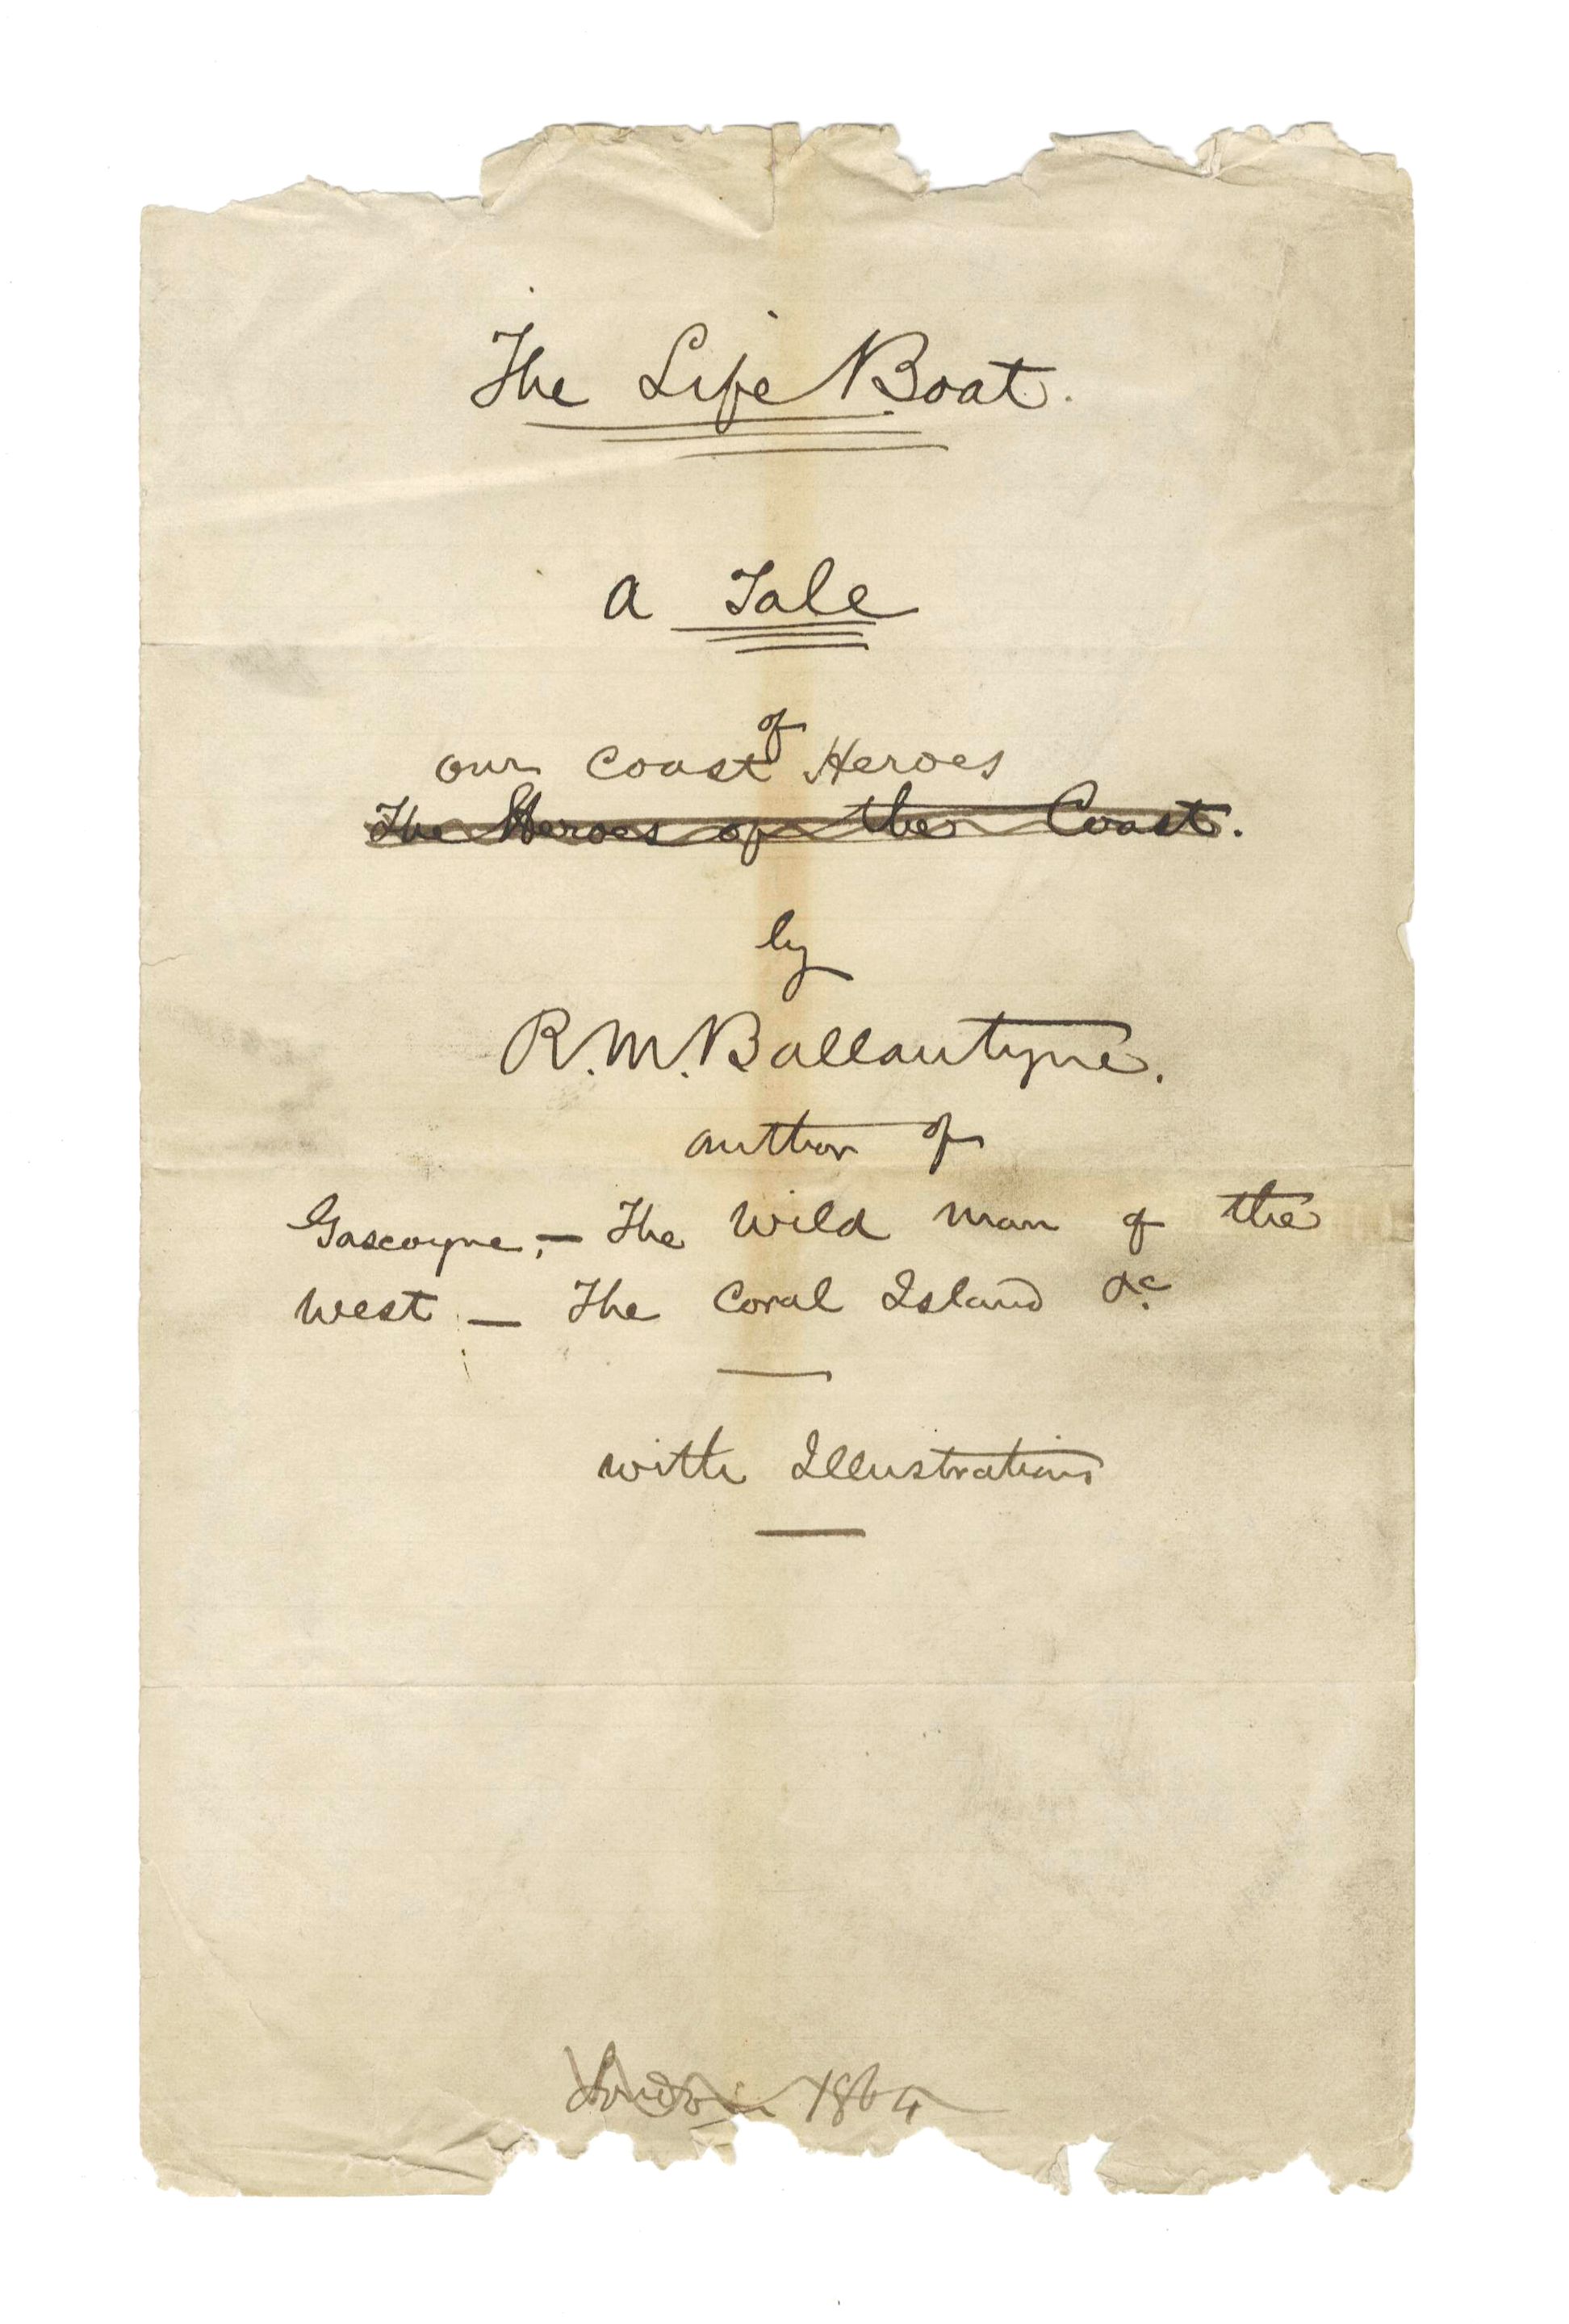 The Life Boat.
A Tale
of
our Coast Heroes
The Heroes of the Coast.
by
R.M. Ballantyne.
author of
Gascoyne, — The Wild Man of the
West — The Coral Island &c
with Illustrations
London 1864